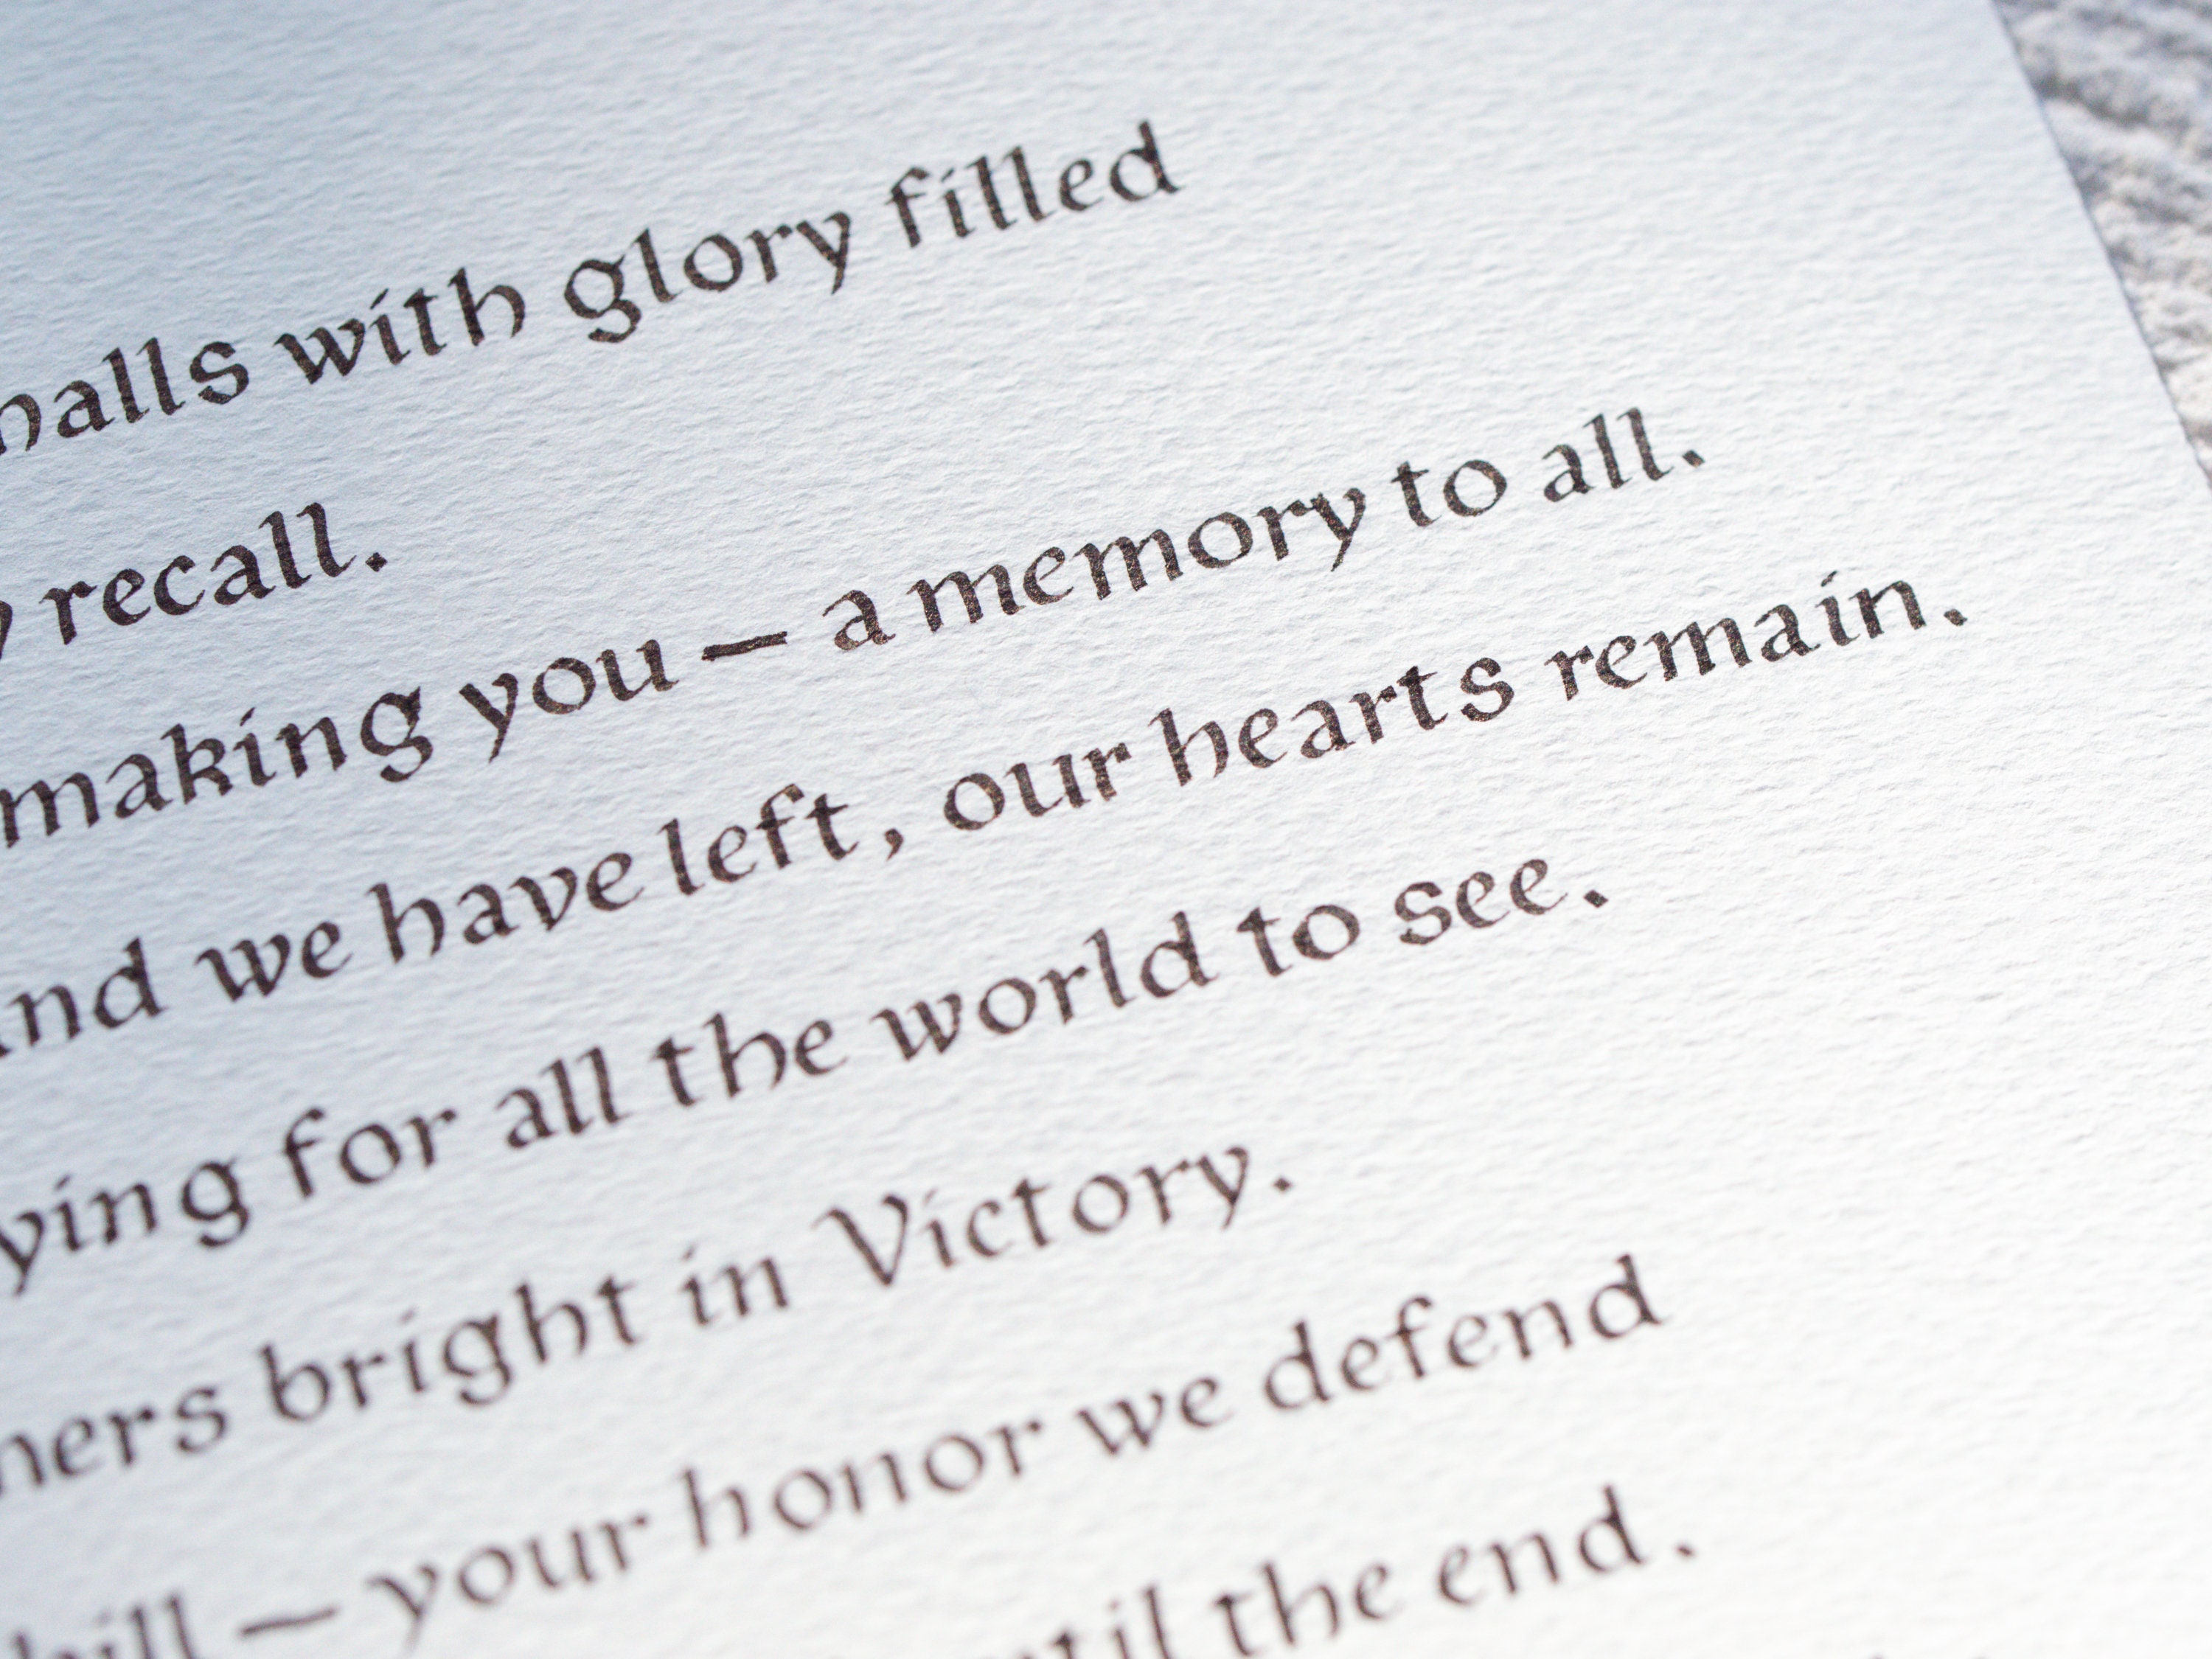 halls with glory filled
recall.
making you — a memory to all.
and we have left, our hearts remain.
ying for all the world to see.
ners bright in Victory.
hill — your honor we defend
until the end.